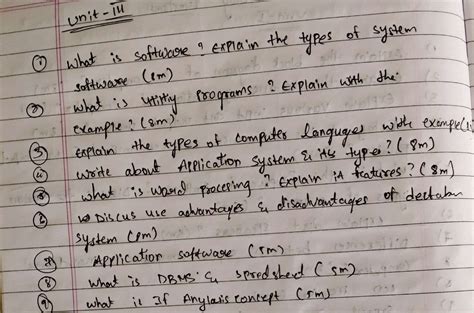 Unit - III
① What is software? Explain the types of system
software (8m)
② What is Utitiy programs? Explain with the
example? (8m)
③ Explain the types of computer languages with example(
④ Write about Application System & its types? (8m)
⑤ what is word procesing? Explain it features? (8m)
⑥ Discus use advantages & disadvantages of
System (8m)
⑦ Application software (5m)
⑧ what is DBMS & spredsheed (5m)
⑨ what is If Anylais concept (5m)